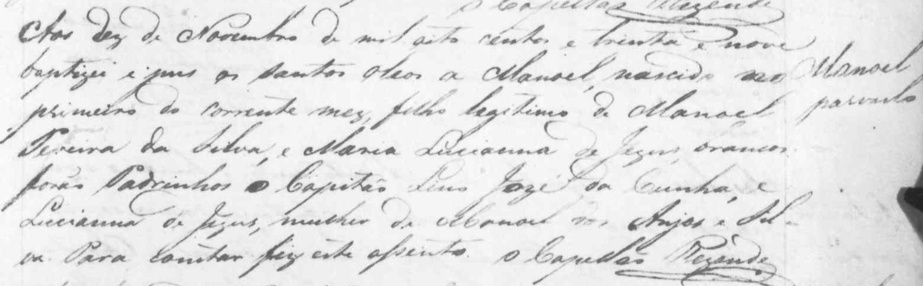 o Capellão Rezende
Aos dez de Novembro de mil oito centos e trinta e nove
baptizei e pus os santos oleos a Manoel, nascido no
primeiro do corrente mez, filho legitimo de Manoel
Pereira da Silva, e Maria Lucianna de Jezus, brancos.
forão Padrinhos o Capitão Lino Jozé da Cunha, e
Lucianna de Jezus, mulher de Manoel dos Anjos e Sil-
va Para constar fiz este assento. o Capellão Rezende
Manoel
parvulo